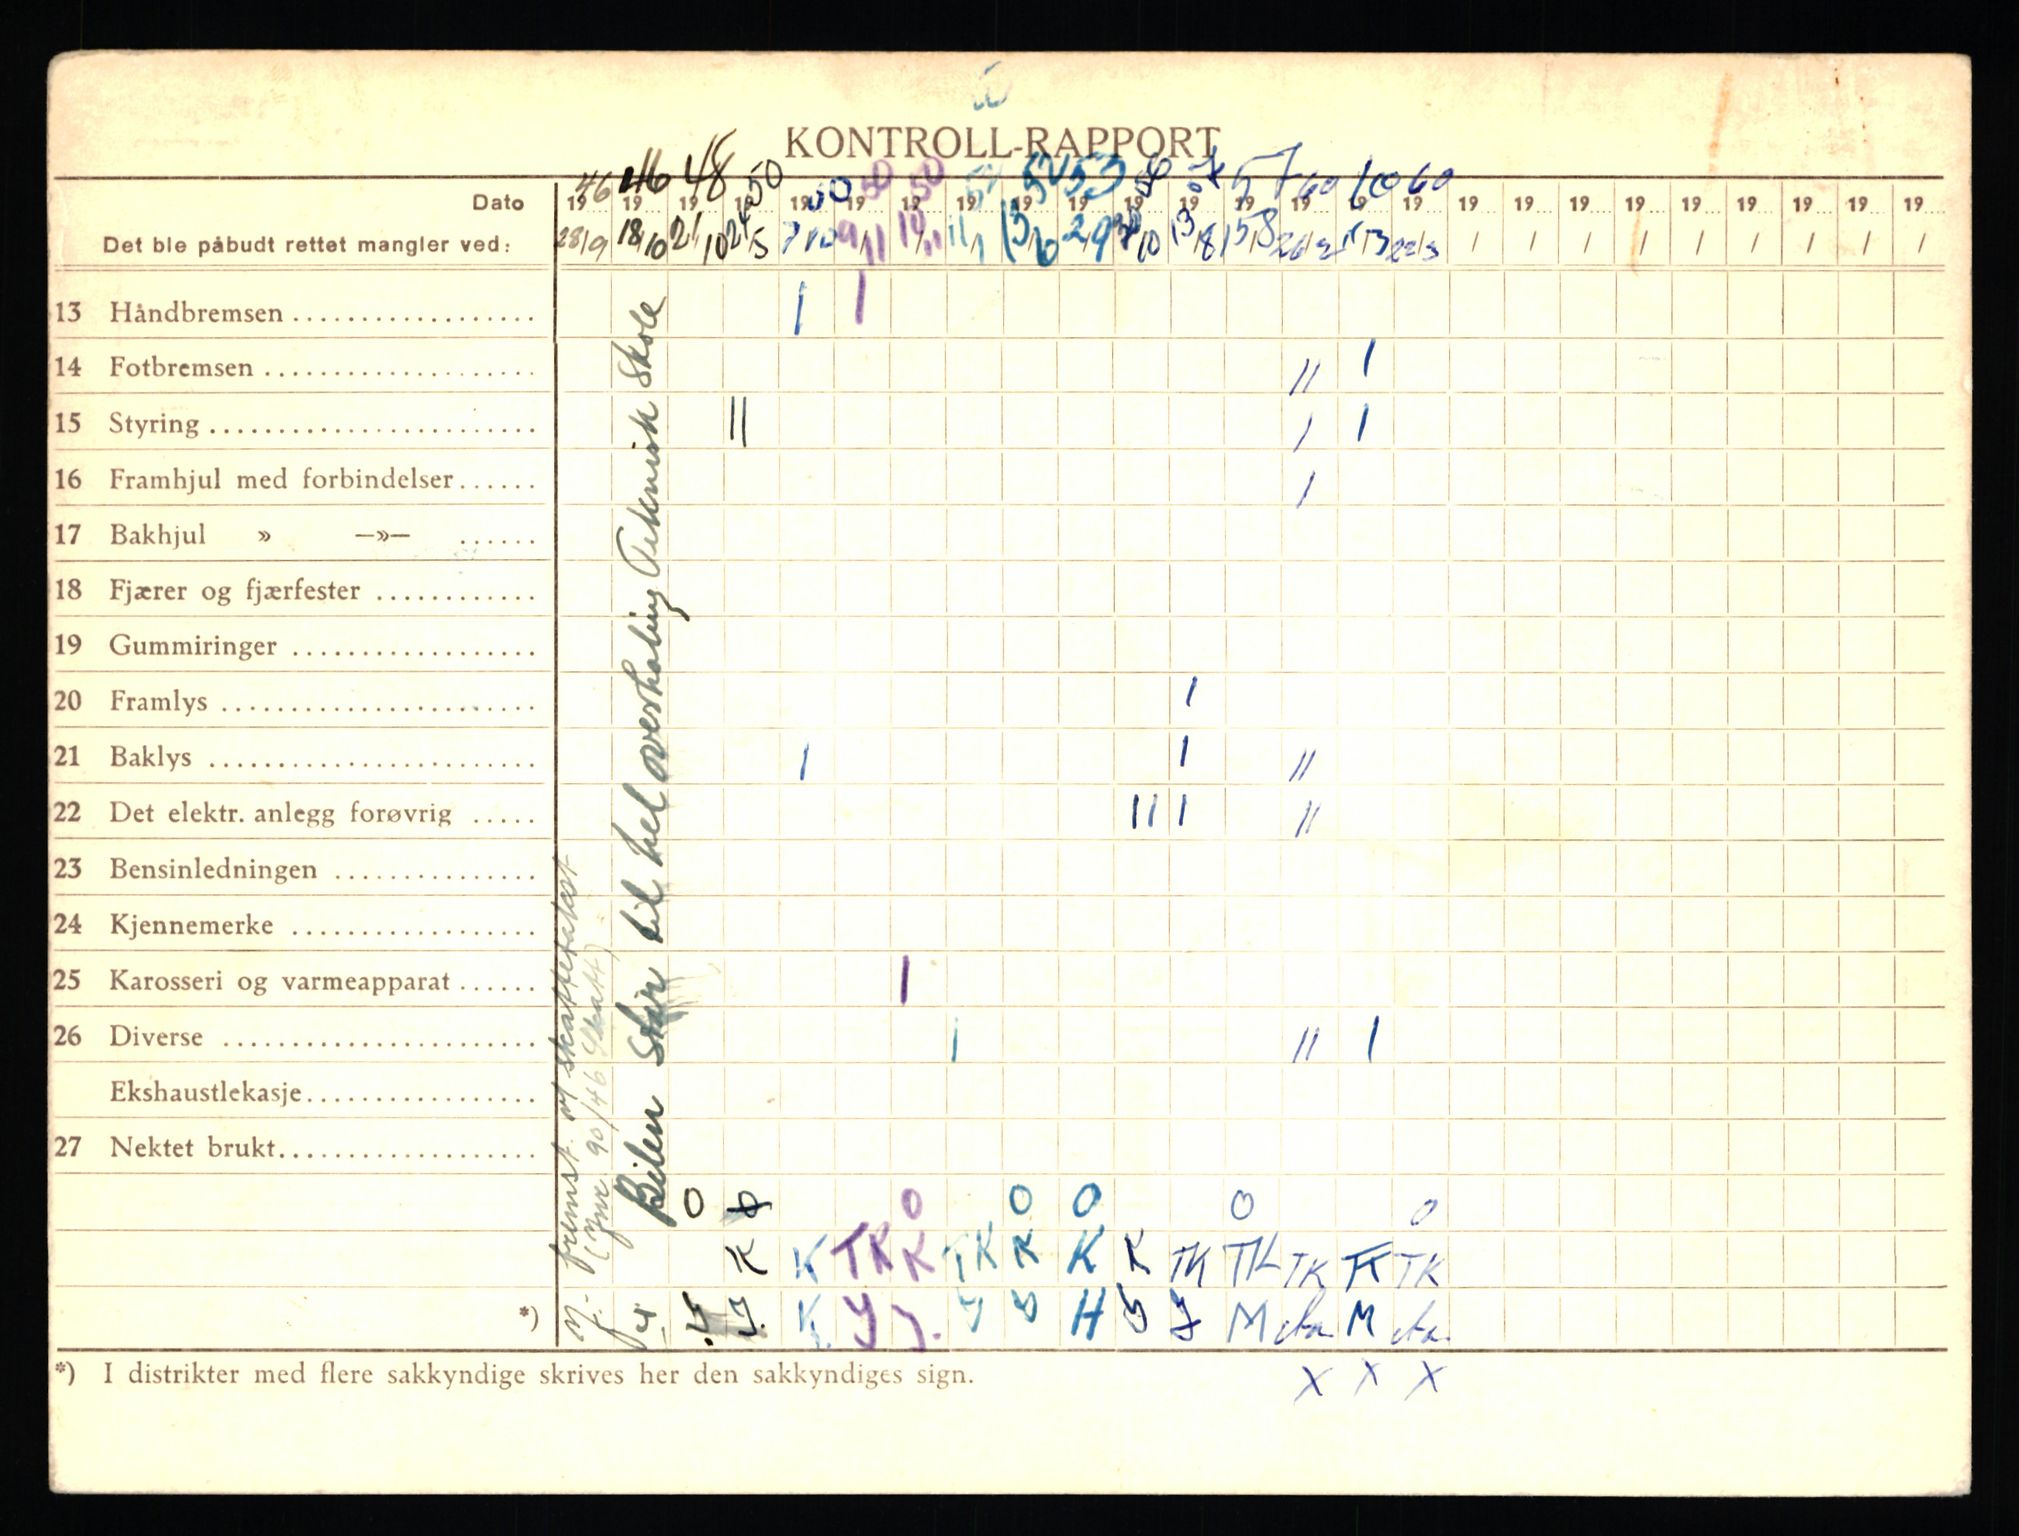 KONTROLL-RAPPORT
46 46 48 50 50 50 50 52 52 53 56 57 57 60 60 60
Dato 19 19 19 19 19 19 19 19 19 19 19 19 19 19 19 19 19 19 19 19 19 19 19 19 19
Det ble påbudt rettet mangler ved: 28/9 18/10 21/10 24/5 9/11 10/11 11/1 13/6 29/9 13/8 15/8 22/3 / / / / / / / / /
13 Håndbremsen I I
14 Fotbremsen II I
15 Styring II I I
16 Framhjul med forbindelser I
17 Bakhjul » —»—
18 Fjærer og fjærfester
19 Gummiringer
20 Framlys I
21 Baklys I I II
22 Det elektr. anlegg forøvrig III I II
23 Bensinledningen
24 Kjennemerke
25 Karosseri og varmeapparat I
26 Diverse I II I
Ekshaustlekasje
27 Nektet brukt
fremst. m/ skatteattest
(Jnr 90/46 Skatt)
Bilen skir til hel overholing Teknisk Skole
O O O O O O
K K TK K TK K K K TK TK TK TK TK
*) Y. Y. K. Y Y. Y Y H Y Y M M
*) I distrikter med flere sakkyndige skrives her den sakkyndiges sign.
X X X